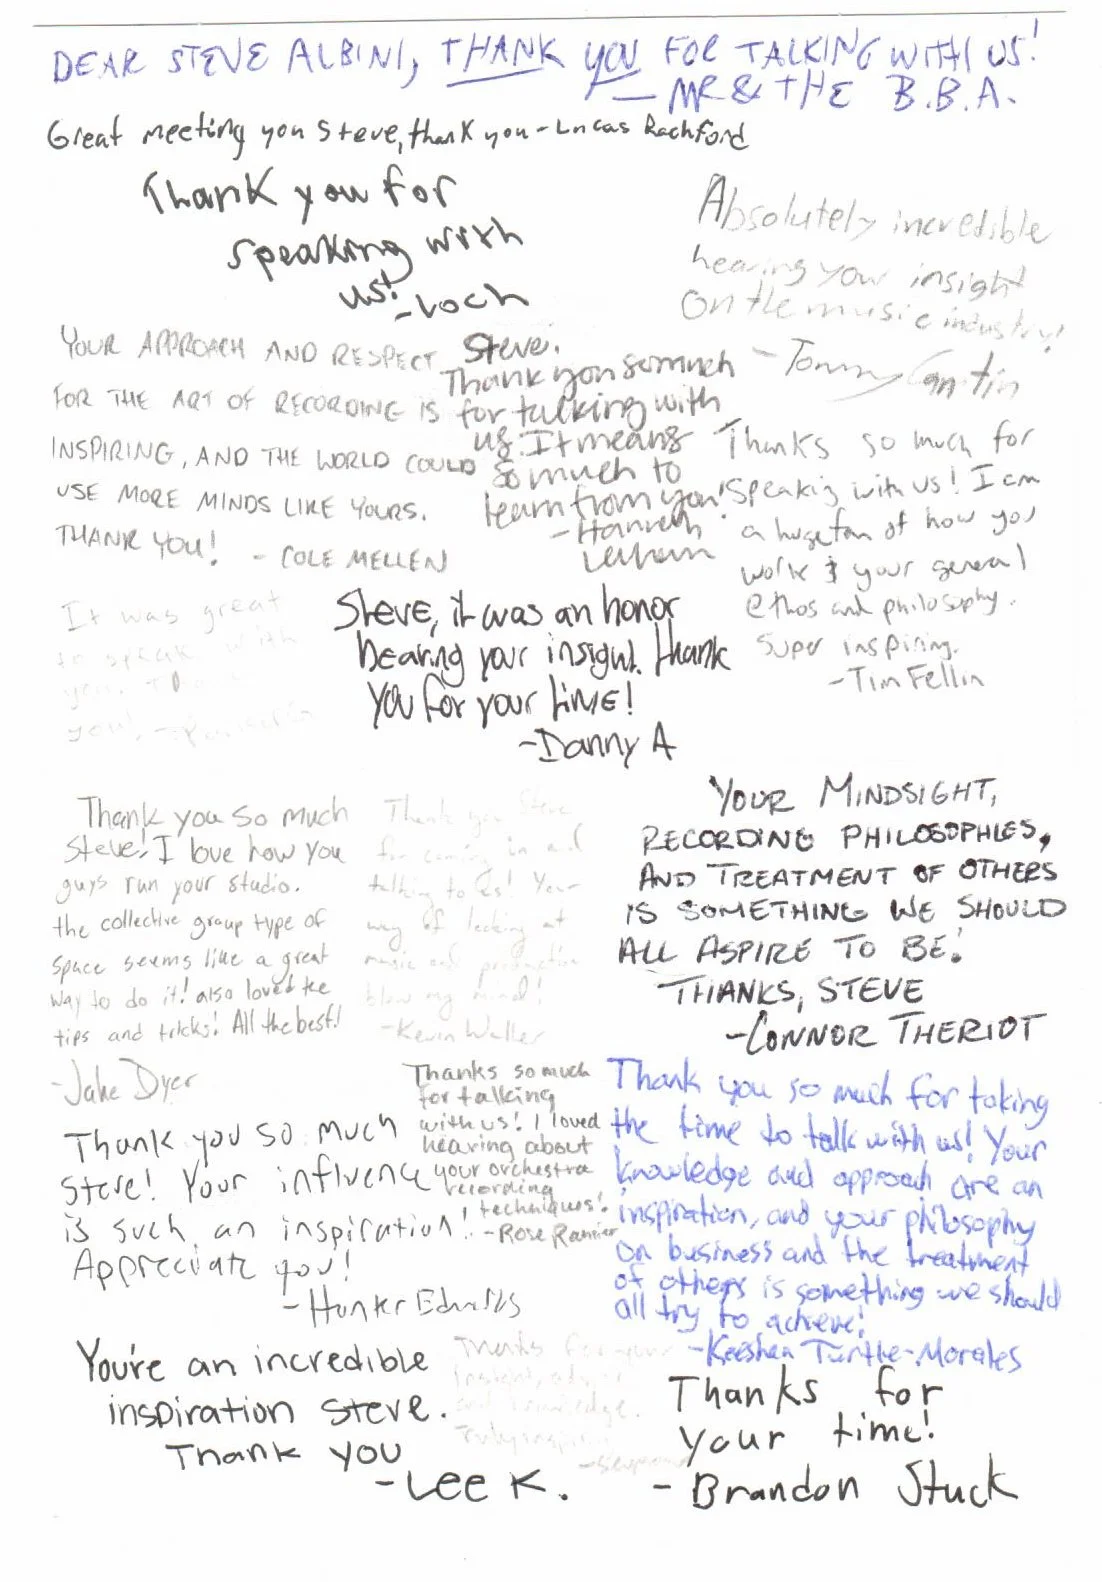 DEAR STEVE ALBINI, THANK YOU FOR TALKING WITH US!
— MR & THE B.B.A.
Great meeting you Steve, thank you - Lucas Rachford
Thank you for
speaking with
us!
- Loch
Absolutely incredible
hearing your insight
On the music industry!
- Tommy Cantin
YOUR APPROACH AND RESPECT
FOR THE ART OF RECORDING IS
INSPIRING, AND THE WORLD COULD
USE MORE MINDS LIKE YOURS.
THANK YOU!
- COLE MELLEN
Steve.
Thank you so much
for talking with
us. It means
so much to
learn from you!
- Hannah
Thanks so much for
speaking with us! I am
a huge fan of how you
work & your general
ethos and philosophy.
Super inspiring.
- Tim Fellin
It was great
to speak with
you.
you!
Steve, it was an honor
hearing your insight. Thank
you for your time!
- Danny A
Thank you so much
Steve! I love how you
guys run your studio.
the collective group type of
space seems like a great
way to do it! also loved the
tips and tricks! All the best!
- Jake Dyer
Thank you Steve
for coming in and
talking to us! Your
way of looking at
music and production
blew my mind!
- Kevin Waller
YOUR MINDSIGHT,
RECORDING PHILOSOPHIES,
AND TREATMENT OF OTHERS
IS SOMETHING WE SHOULD
ALL ASPIRE TO BE!
THANKS, STEVE
- CONNOR THERIOT
Thank you so much
Steve! Your influence
is such an inspiration!
Appreciate you!
- Hunter Edwards
Thanks so much
for talking
with us! I loved
hearing about
your orchestra
recording
techniques!
- Rose Rainier
Thank you so much for taking
the time to talk with us! Your
knowledge and approach are an
inspiration, and your philosophy
on business and the treatment
of others is something we should
all try to achieve!
- Keeshea Turtle-Morales
You're an incredible
inspiration Steve.
Thank you
- Lee K.
Thanks for your
insight,
and knowledge.
Truly
Thanks for
your time!
- Brandon Stuck